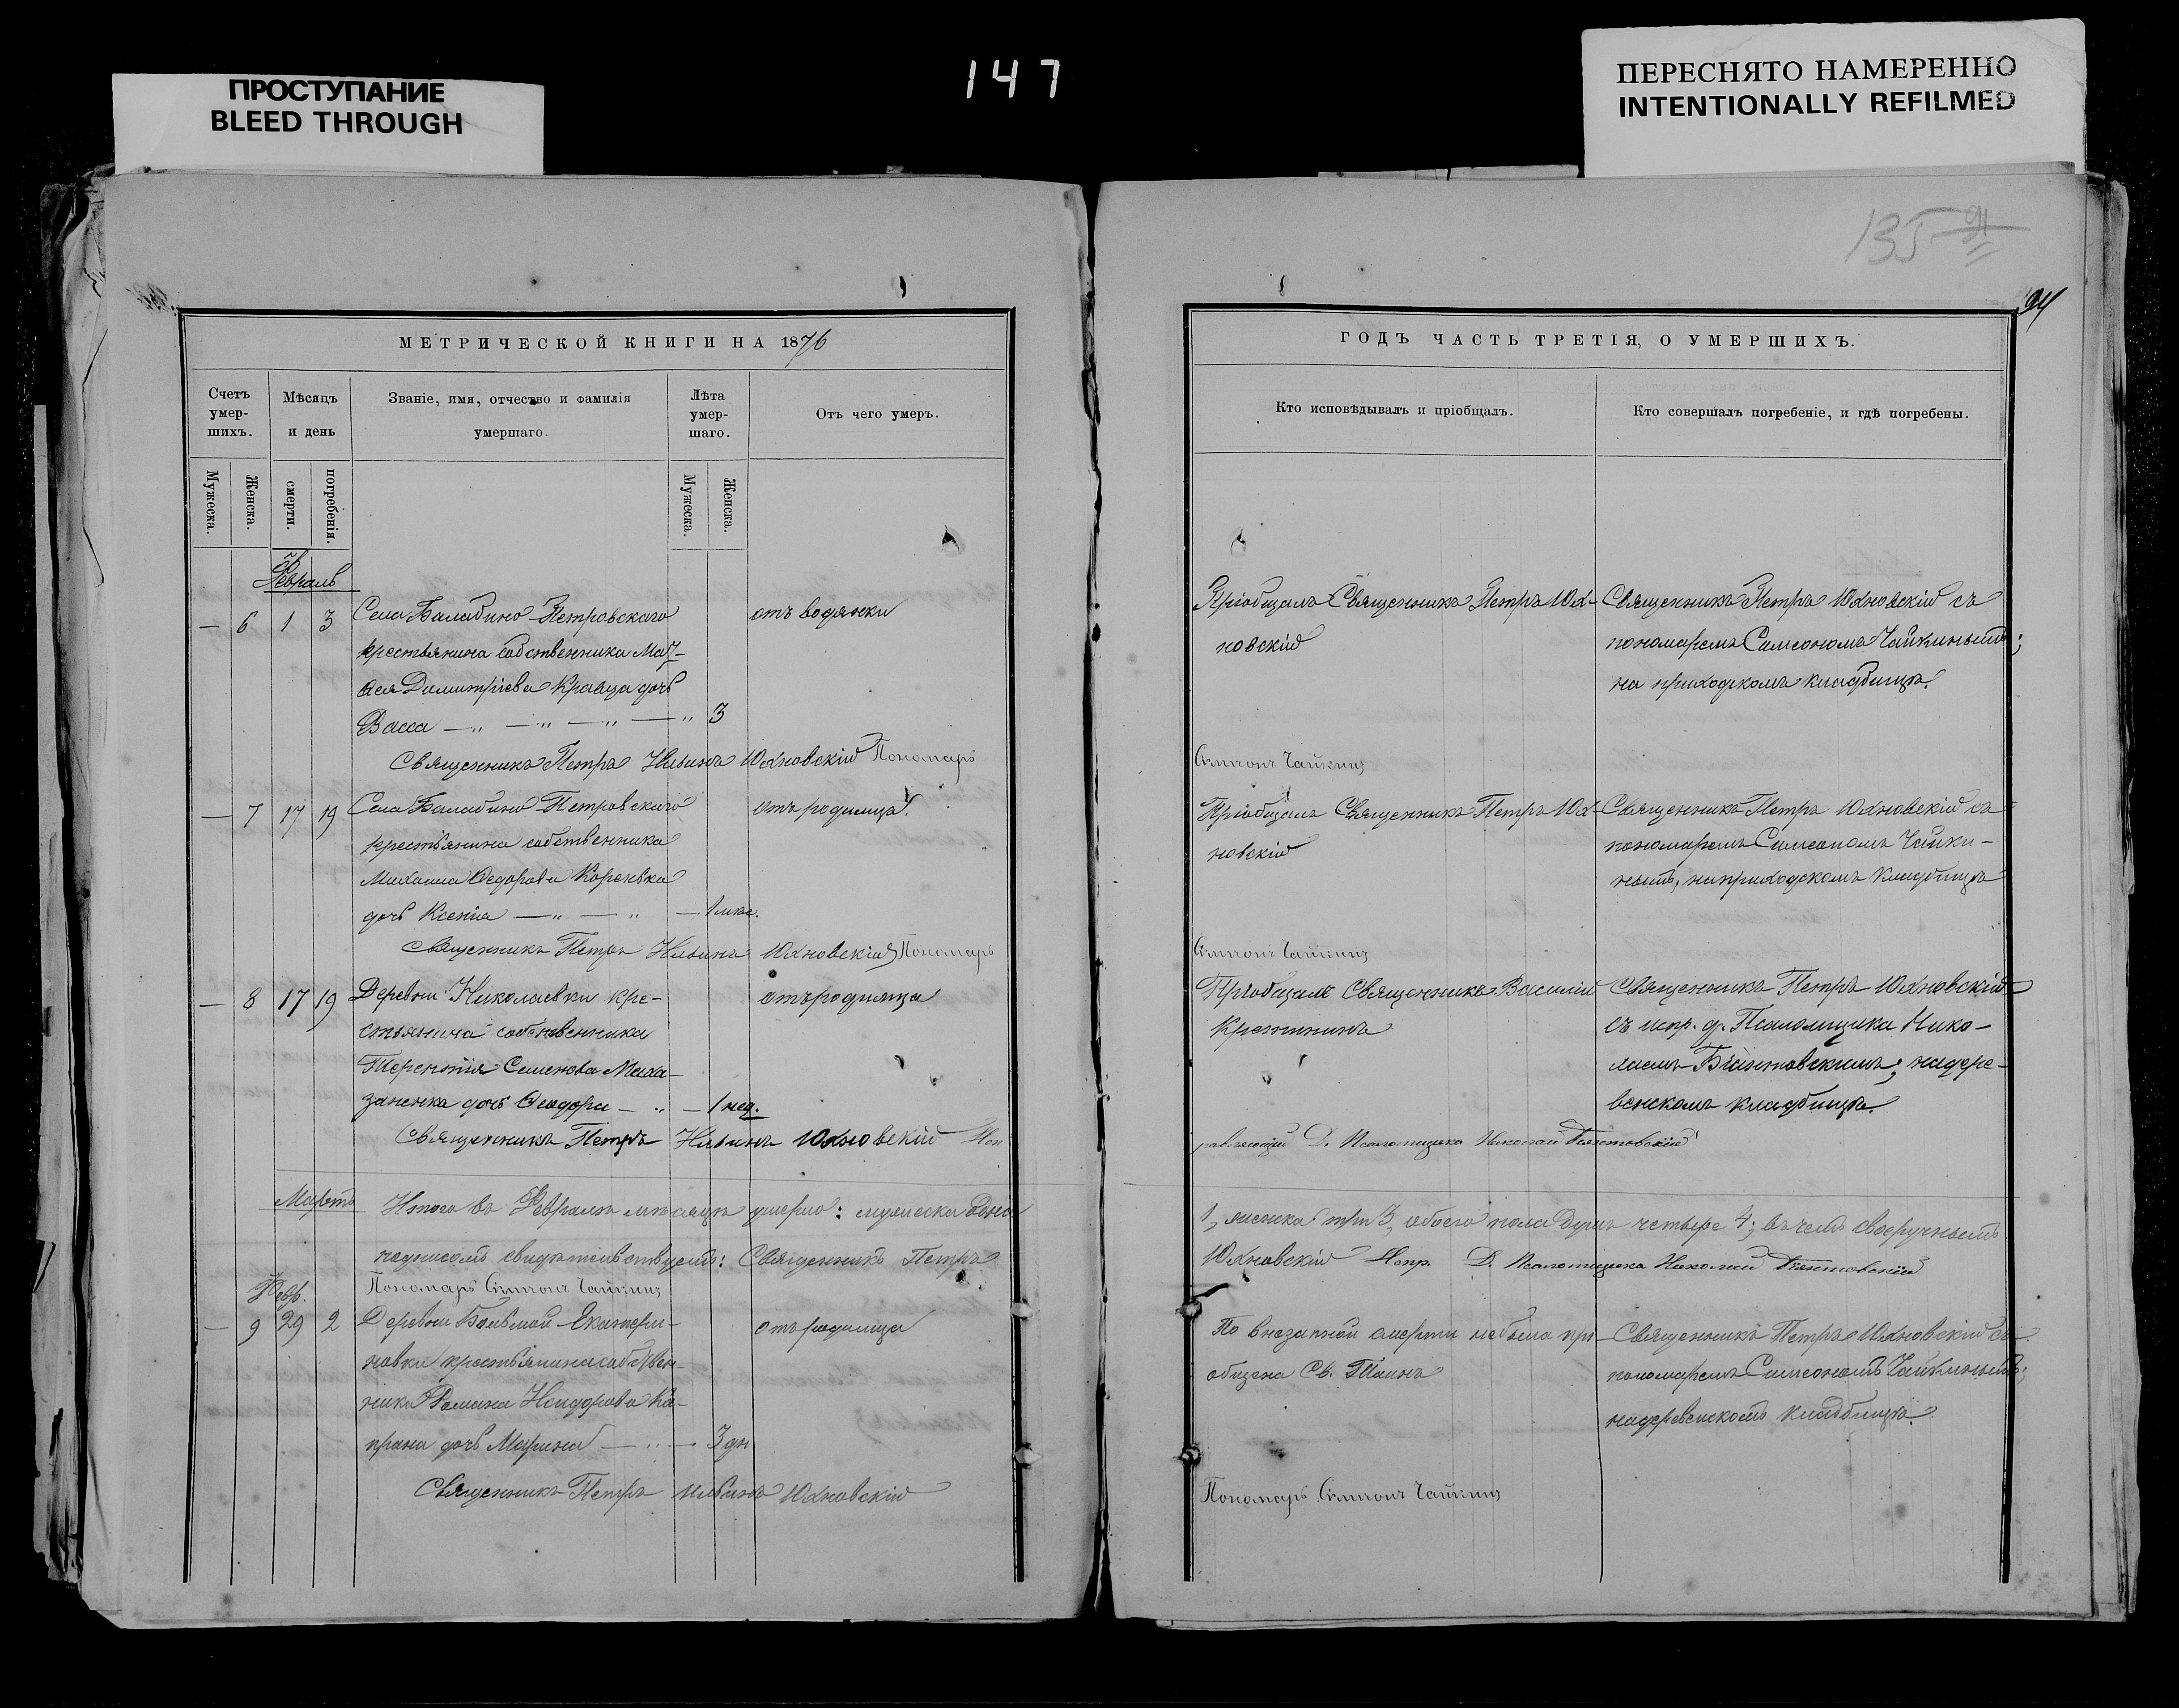 147
ПРОСТУПАНИЕ
BLEED THROUGH
ПЕРЕСНЯТО НАМЕРЕННО
INTENTIONALLY REFILMED
135
МЕТРИЧЕСКОЙ КНИГИ НА 1876
Счетъ умер-шихъ.
Мѣсяцъ и день
Званіе, имя, отчество и фамилія умершаго.
Лѣта умер-шаго.
Отъ чего умеръ.
Мужеска.
Женска.
смерти.
погребенія.
Мужеска.
Женска.
Февраль
— 6 1 3 Села Балабино-Петровскаго отъ водянки
крестьянина собственника
Димитріева Кравца дочь
Васса — „ — „ — „ — „ 3
Священникъ Петръ Ильинъ Юхновскій Пономарь
— 7 17 19 Села Балабино-Петровскаго отъ родимца.
крестьянина собственника
Михаила Федорова Коренька
дочь Ксенія — „ — „ — 1 мѣс.
Священникъ Петръ Ильинъ Юхновскій Пономарь
— 8 17 19 Деревни Николаевки кре- отъ родимца
стьянина собственника
Терентія Семенова Маха-
зненка дочь Феодора — „ — 1 нед.
Священникъ Петръ Ильинъ Юхновскій Исп
Мартъ
Итого въ Февралѣ мѣсяцѣ умерло: мужеска одинъ
подписомъ свидѣтельствуемъ: Священникъ Петръ
Пономарь Симеонъ Чайкинъ
Февр.
— 9 29 2 Деревни Большой-Екатери- отъ родимца
новки крестьянина собствен-
ника Романа Исидорова Ка-
прана дочь Марина — „ — 3 дн.
Священникъ Петръ Ильинъ Юхновскій
94
ГОДЪ ЧАСТЬ ТРЕТІЯ, О УМЕРШИХЪ.
Кто исповѣдывалъ и пріобщалъ.
Кто совершалъ погребеніе, и гдѣ погребены.
Пріобщалъ Священникъ Петръ Юх- Священникъ Петръ Юхновскій съ
новскій пономаремъ Симеономъ Чайкинымъ;
на приходскомъ кладбищѣ.
Симеонъ Чайкинъ
Пріобщалъ Священникъ Петръ Юх- Священникъ Петръ Юхновскій съ
новскій пономаремъ Симеономъ Чайки-
нымъ, на приходскомъ кладбищѣ
Симеонъ Чайкинъ
Пріобщалъ Священникъ Василій Священникъ Петръ Юхновскій
съ испр. д. Псаломщика Нико-
лаемъ Бѣлантовскимъ; на дере-
венскомъ кладбищѣ.
равляющій Д. Псаломщика Николай
1, женска три 3, обоего пола душъ четыре 4; въ чемъ своеручнымъ
Юхновскій Испр. Д. Псаломщика Николай
По внезапной смерти не была прі- Священникъ Петръ Юхновскій съ
общена Св. Таинъ пономаремъ Симеономъ Чайкинымъ;
на деревенскомъ кладбищѣ.
Пономарь Симеонъ Чайкинъ